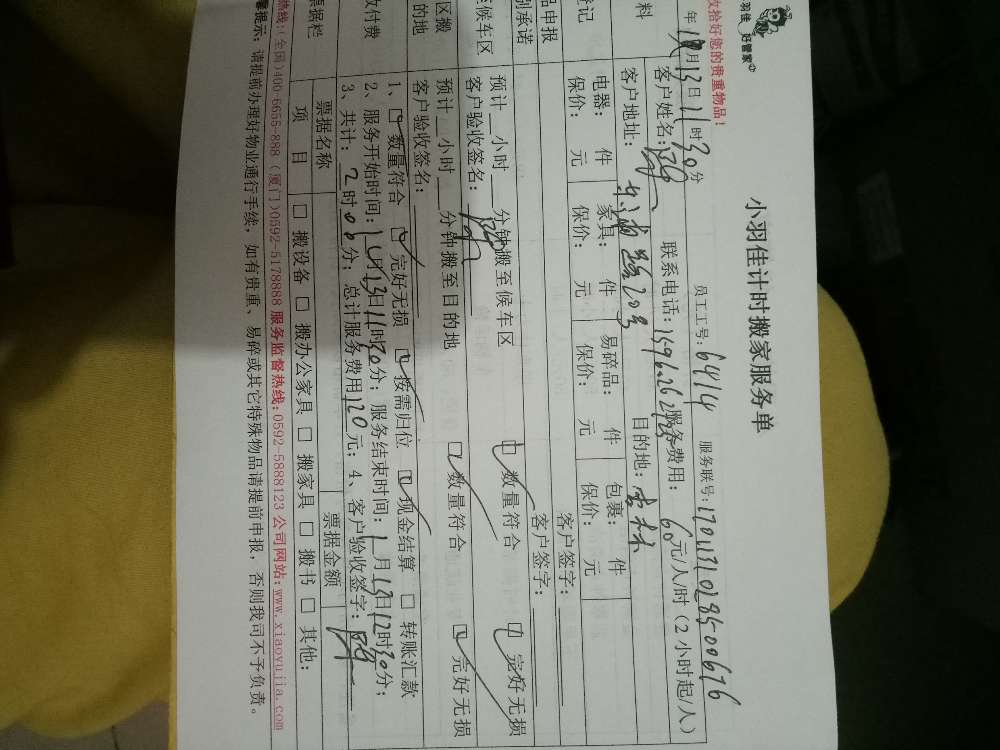 羽佳
好管家
收拾好您的贵重物品！
小羽佳计时搬家服务单
员工工号：6414
服务联号：1701131028500676
年 1月13日11时30分
客户姓名：陈
联系电话：
服务费用：60元/人/时（2小时起/人）
料
客户地址：
20号
目的地：吉林
登记
电器： 件 家具： 件 易碎品： 件 包裹： 件
保价： 元 保价： 元 保价： 元 保价： 元
品申报
客户签字：
别承诺
客户签字：
候车区
预计 小时 分钟搬至候车区
数量符合
完好无损
客户验收签名：陈
区搬
的地
预计 小时 分钟搬至目的地
数量符合
完好无损
客户验收签名：
收付费
1、 数量符合 完好无损 按需归位 现金结算 转账汇款
2、服务开始时间：1月13日11时30分；服务结束时间：1月13日12时30分；
3、共计：2时00分；总计服务费用120元；4、客户验收签字：陈
票据栏
票据名称
票据金额
项目
搬设备 搬办公家具 搬家具 搬书 其他：
热线：(全国)400-6656-888（厦门)0592-5178888 服务监督热线：0592-5888123 公司网站：www.xiaoyujia.com
馨提示：请提前办理好物业通行手续，如有贵重、易碎或其它特殊物品请提前申报，否则我司不予负责。